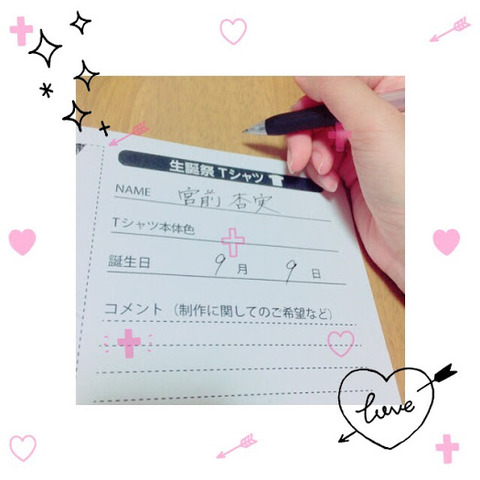 生誕祭Tシャツ
NAME 宮前 杏実
Tシャツ本体色
誕生日 9月 9日
コメント(制作に関してのご希望など)
love